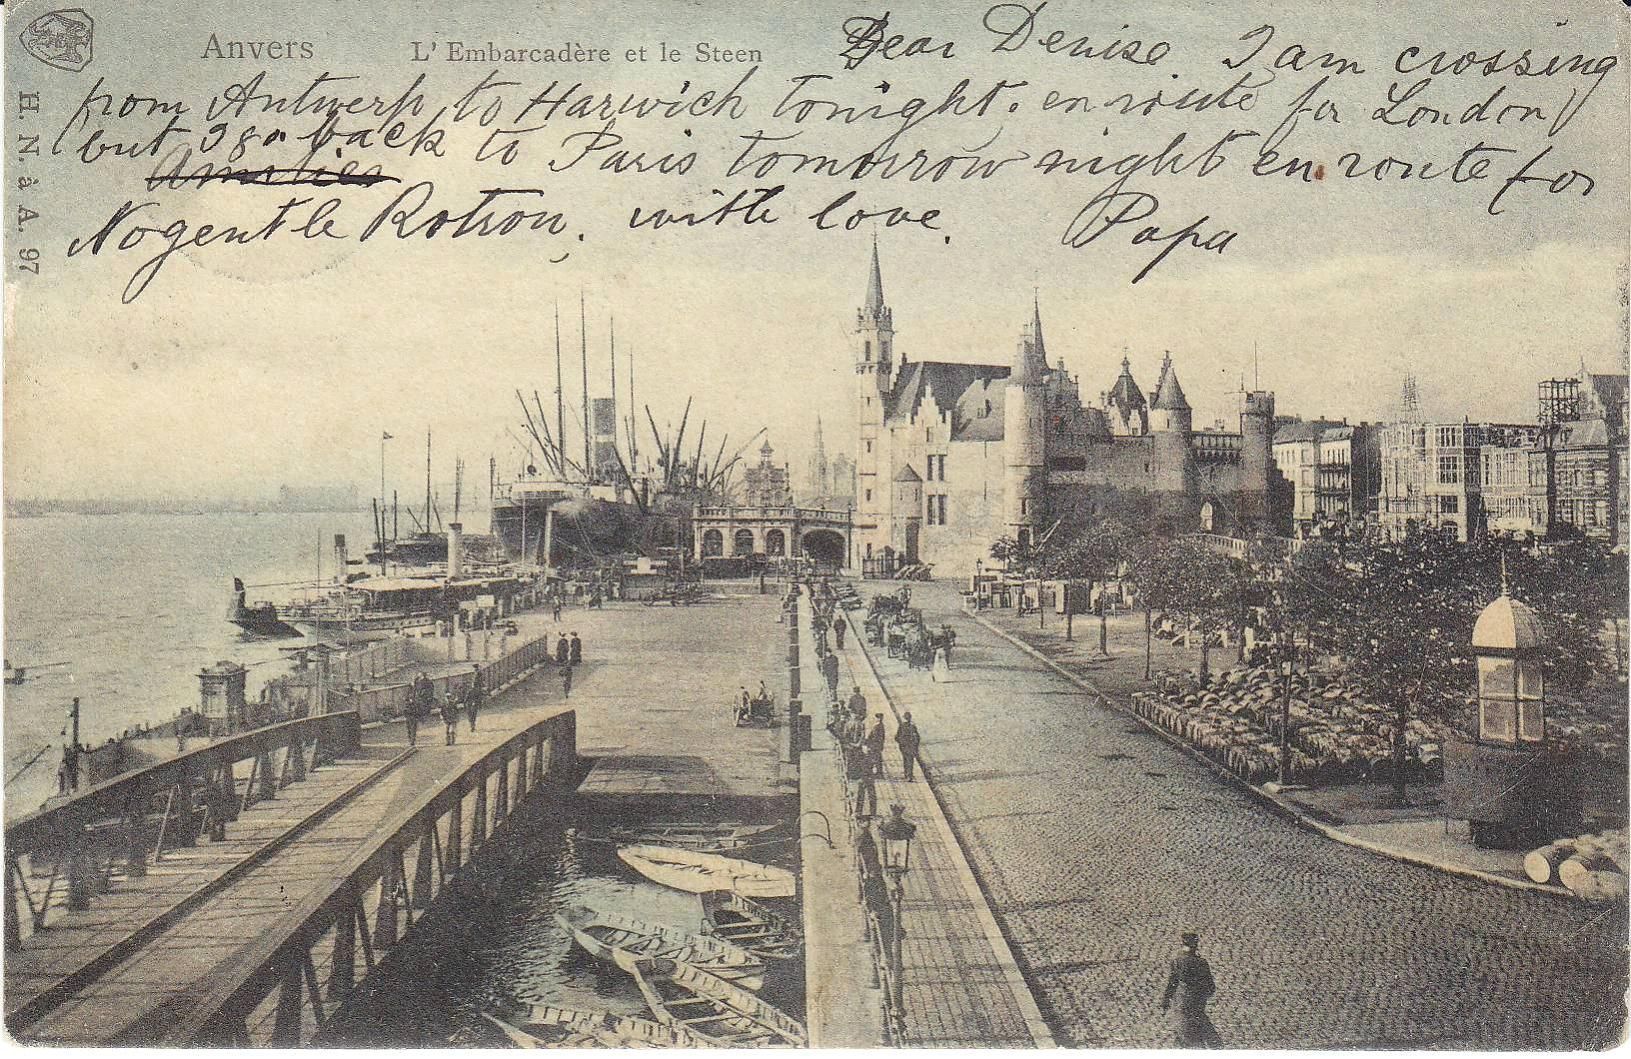 Anvers L' Embarcadère et le Steen
H. N. à A. 97
Dear Denise. I am crossing
from Antwerp to Harwich tonight, en route for London
but I go back to Paris tomorrow night en route for
Nogent le Rotrou, with love.
Papa